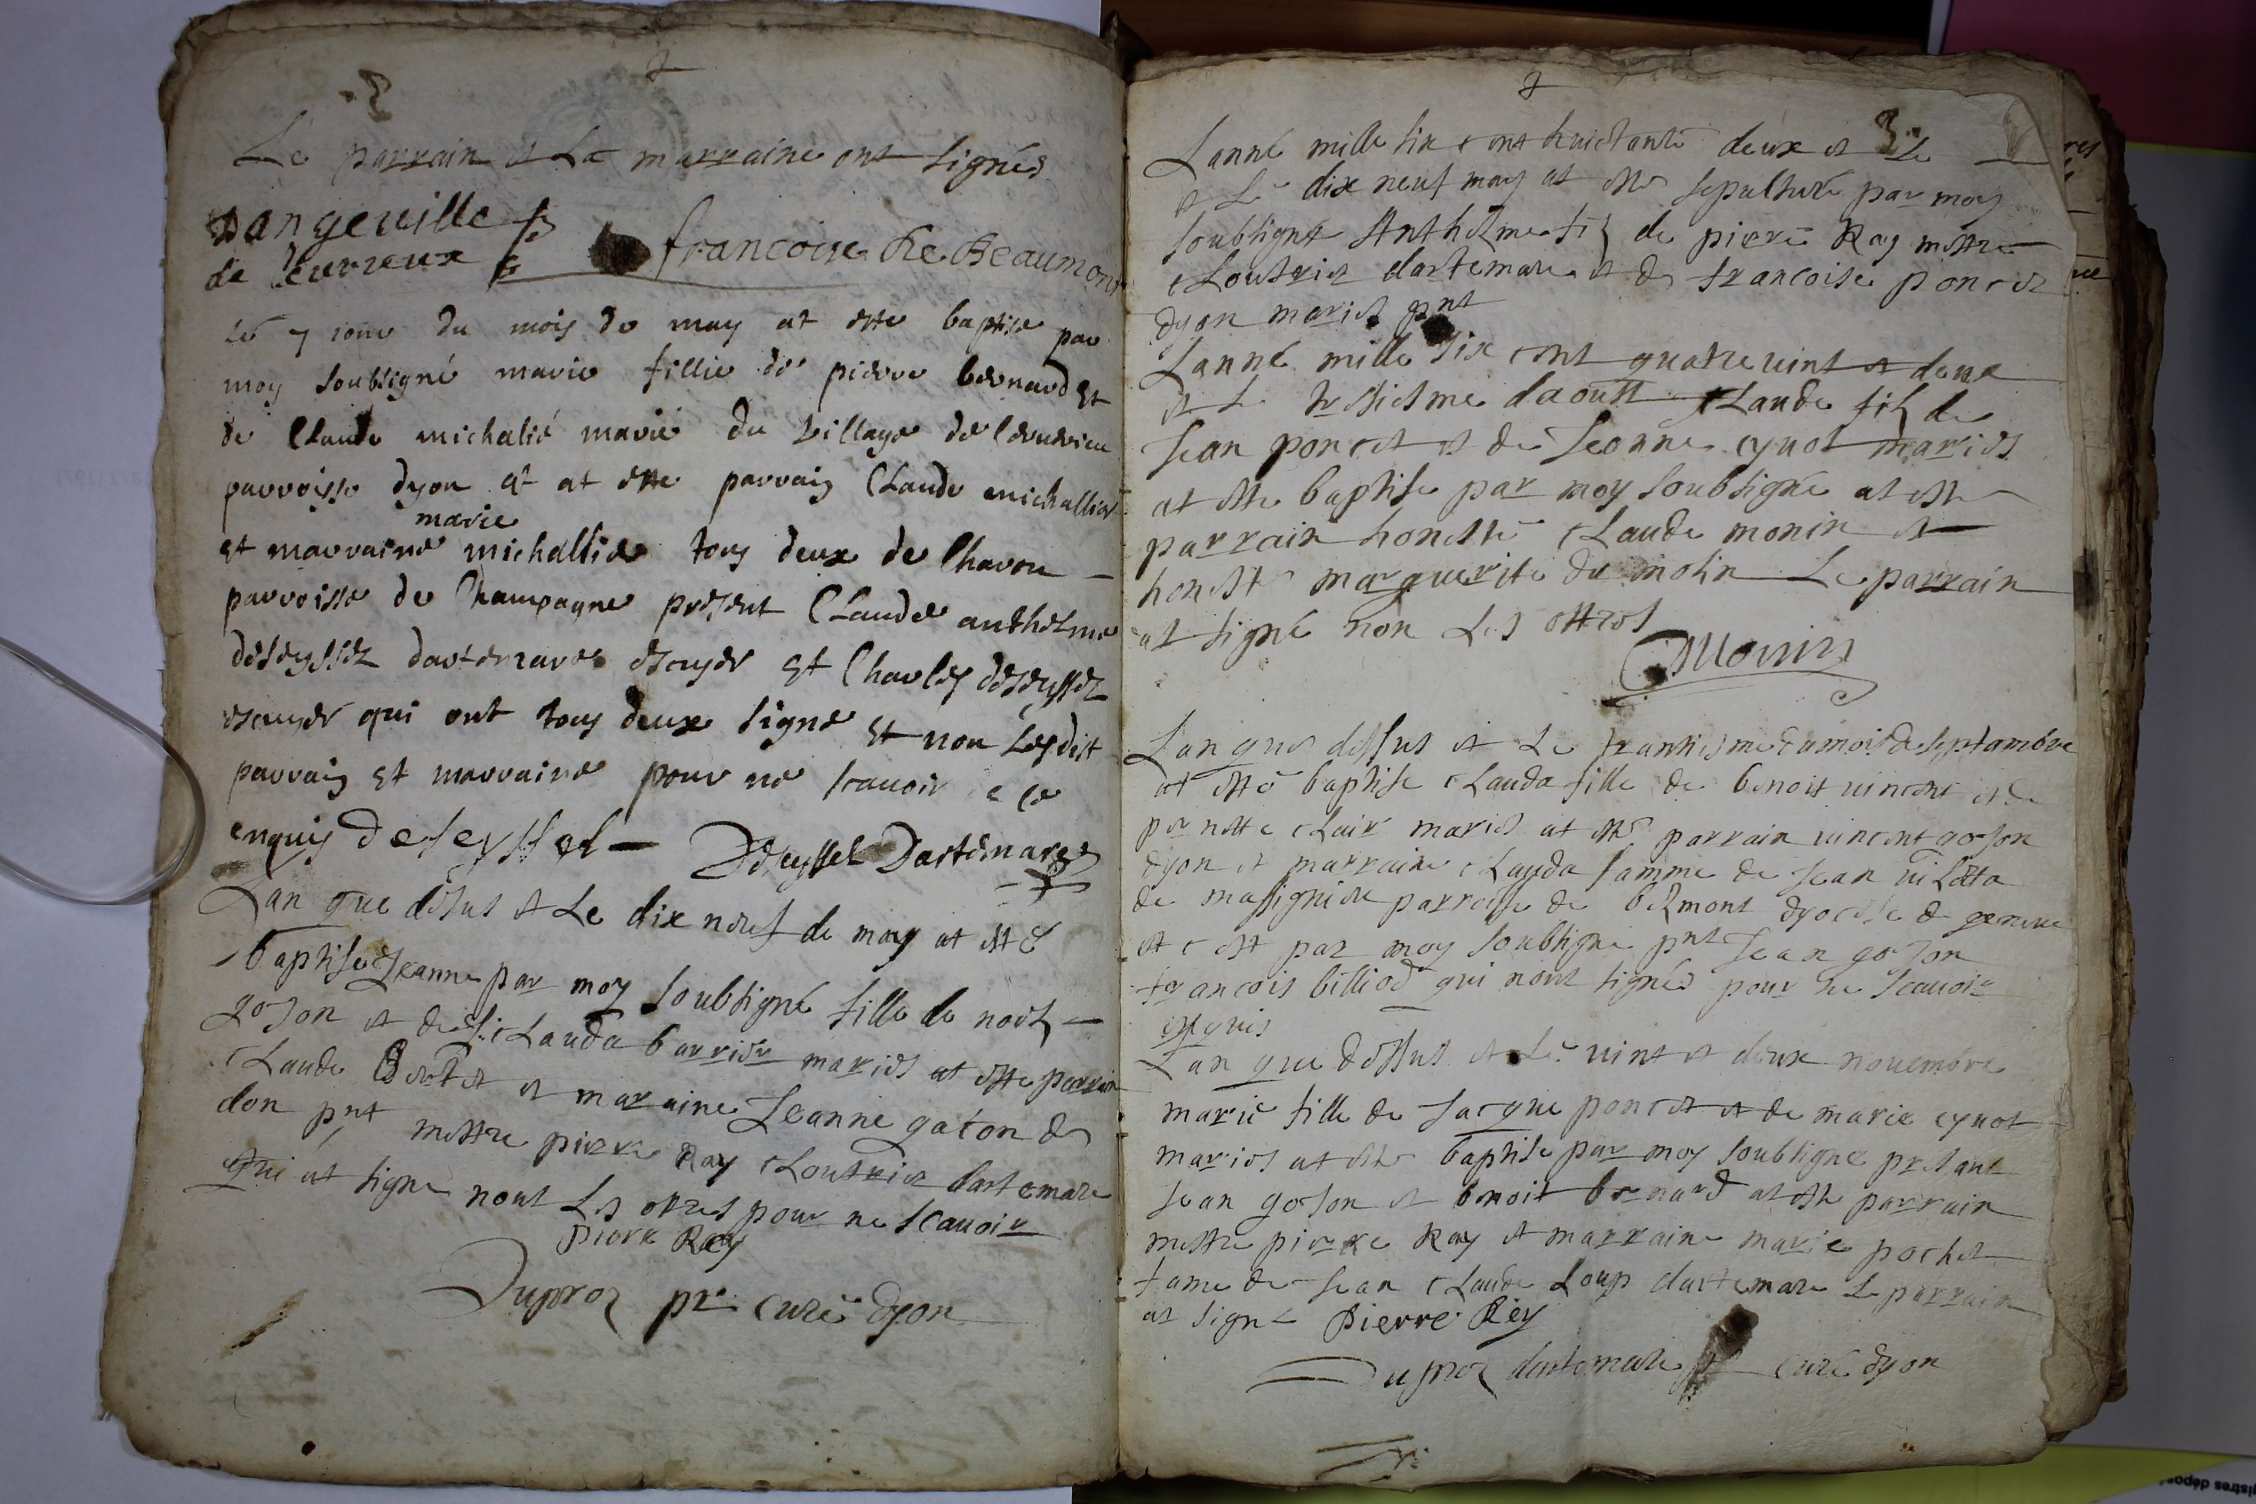 Le parrain et La marraine ont signés
Dangeville
de Leurieux francoise De Beaumont
Le 7 jour du mois de may at este baptise par
moy soubsigné marie fillie de pierre bernard et
de Claude michalié marié du village de
parroisse dyon et at este parrain Claude michallier
marie
et marraine michallier tous deux de Chavon
parroisse de Champagne present Claude anthelme
deseyssel dartemare escuyer et Charles deseyssel
escuyer qui ont tous deux signe et non Lesdit
parrain et marraine pour ne scavoir a ce
enquis deseyssel Deseyssel Dartemares
Lan que desus et Le dix neuf de may at esté
baptise Jeanne par moy soubsigné fille de noel
goson et de Clauda barrier mariés at este parrain
Claude et maraine Jeanne gaton de
don pnt mestre pierre Ray Cloutrier dartemare
qui at signe nont Les otres pour ne scavoir
Pierre Rey
Duproz ptre curé dyon
Lanné mille six cent huictante deux et Le
et Le dix neuf may at este sepulturé par moy
soubsigne Anthelme filz de pierre Ray mestre
Cloutrier dartemare et de francoise poncet
dyon mariés pnt
Lanné mille six cent quatre vint et deux
et Le tresiesme daoust Claude filz de
Jean poncet et de Jeanne cynot mariés
at este baptise par moy soubsigné at este
parrain honeste Claude monin et
honeste marguerite du molin Le parrain
at signé non Les ottres
C Monin
Lan que dessus et Le trantiesme du mois de septambre
at esté baptise Clauda fille de benoit vincent et de
pernette Clair mariés at este parrain vincent goson
dyon et marraine Clauda famme de Jean
de massignieu parroisse de belmont dyocese de geneve
et cest par moy soubsigne pnt Jean goson
francois billiod qui nont signés pour ne scavoir
enquis
Lan que dessus et Le vint et deux novembre
marie fille de Jacque poncet et de marie cynot
mariés at este baptise par moy soubsigne presant
Jean goson et benoit bernard at este parrain
mestre pierre Ray et marraine marie pochet
fame de Jean Claude Loup dartemare Le parrain
at signé Pierre Rey
Duproz dartemare curé dyon